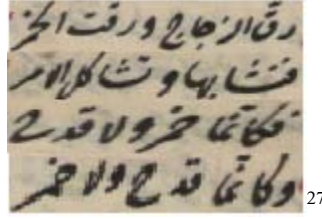 رق الزجاج ورقت الخمر
فتشابها وتشاكل الامر
فكانما خمر ولا قدح
وكانما قدح ولا خمر
27